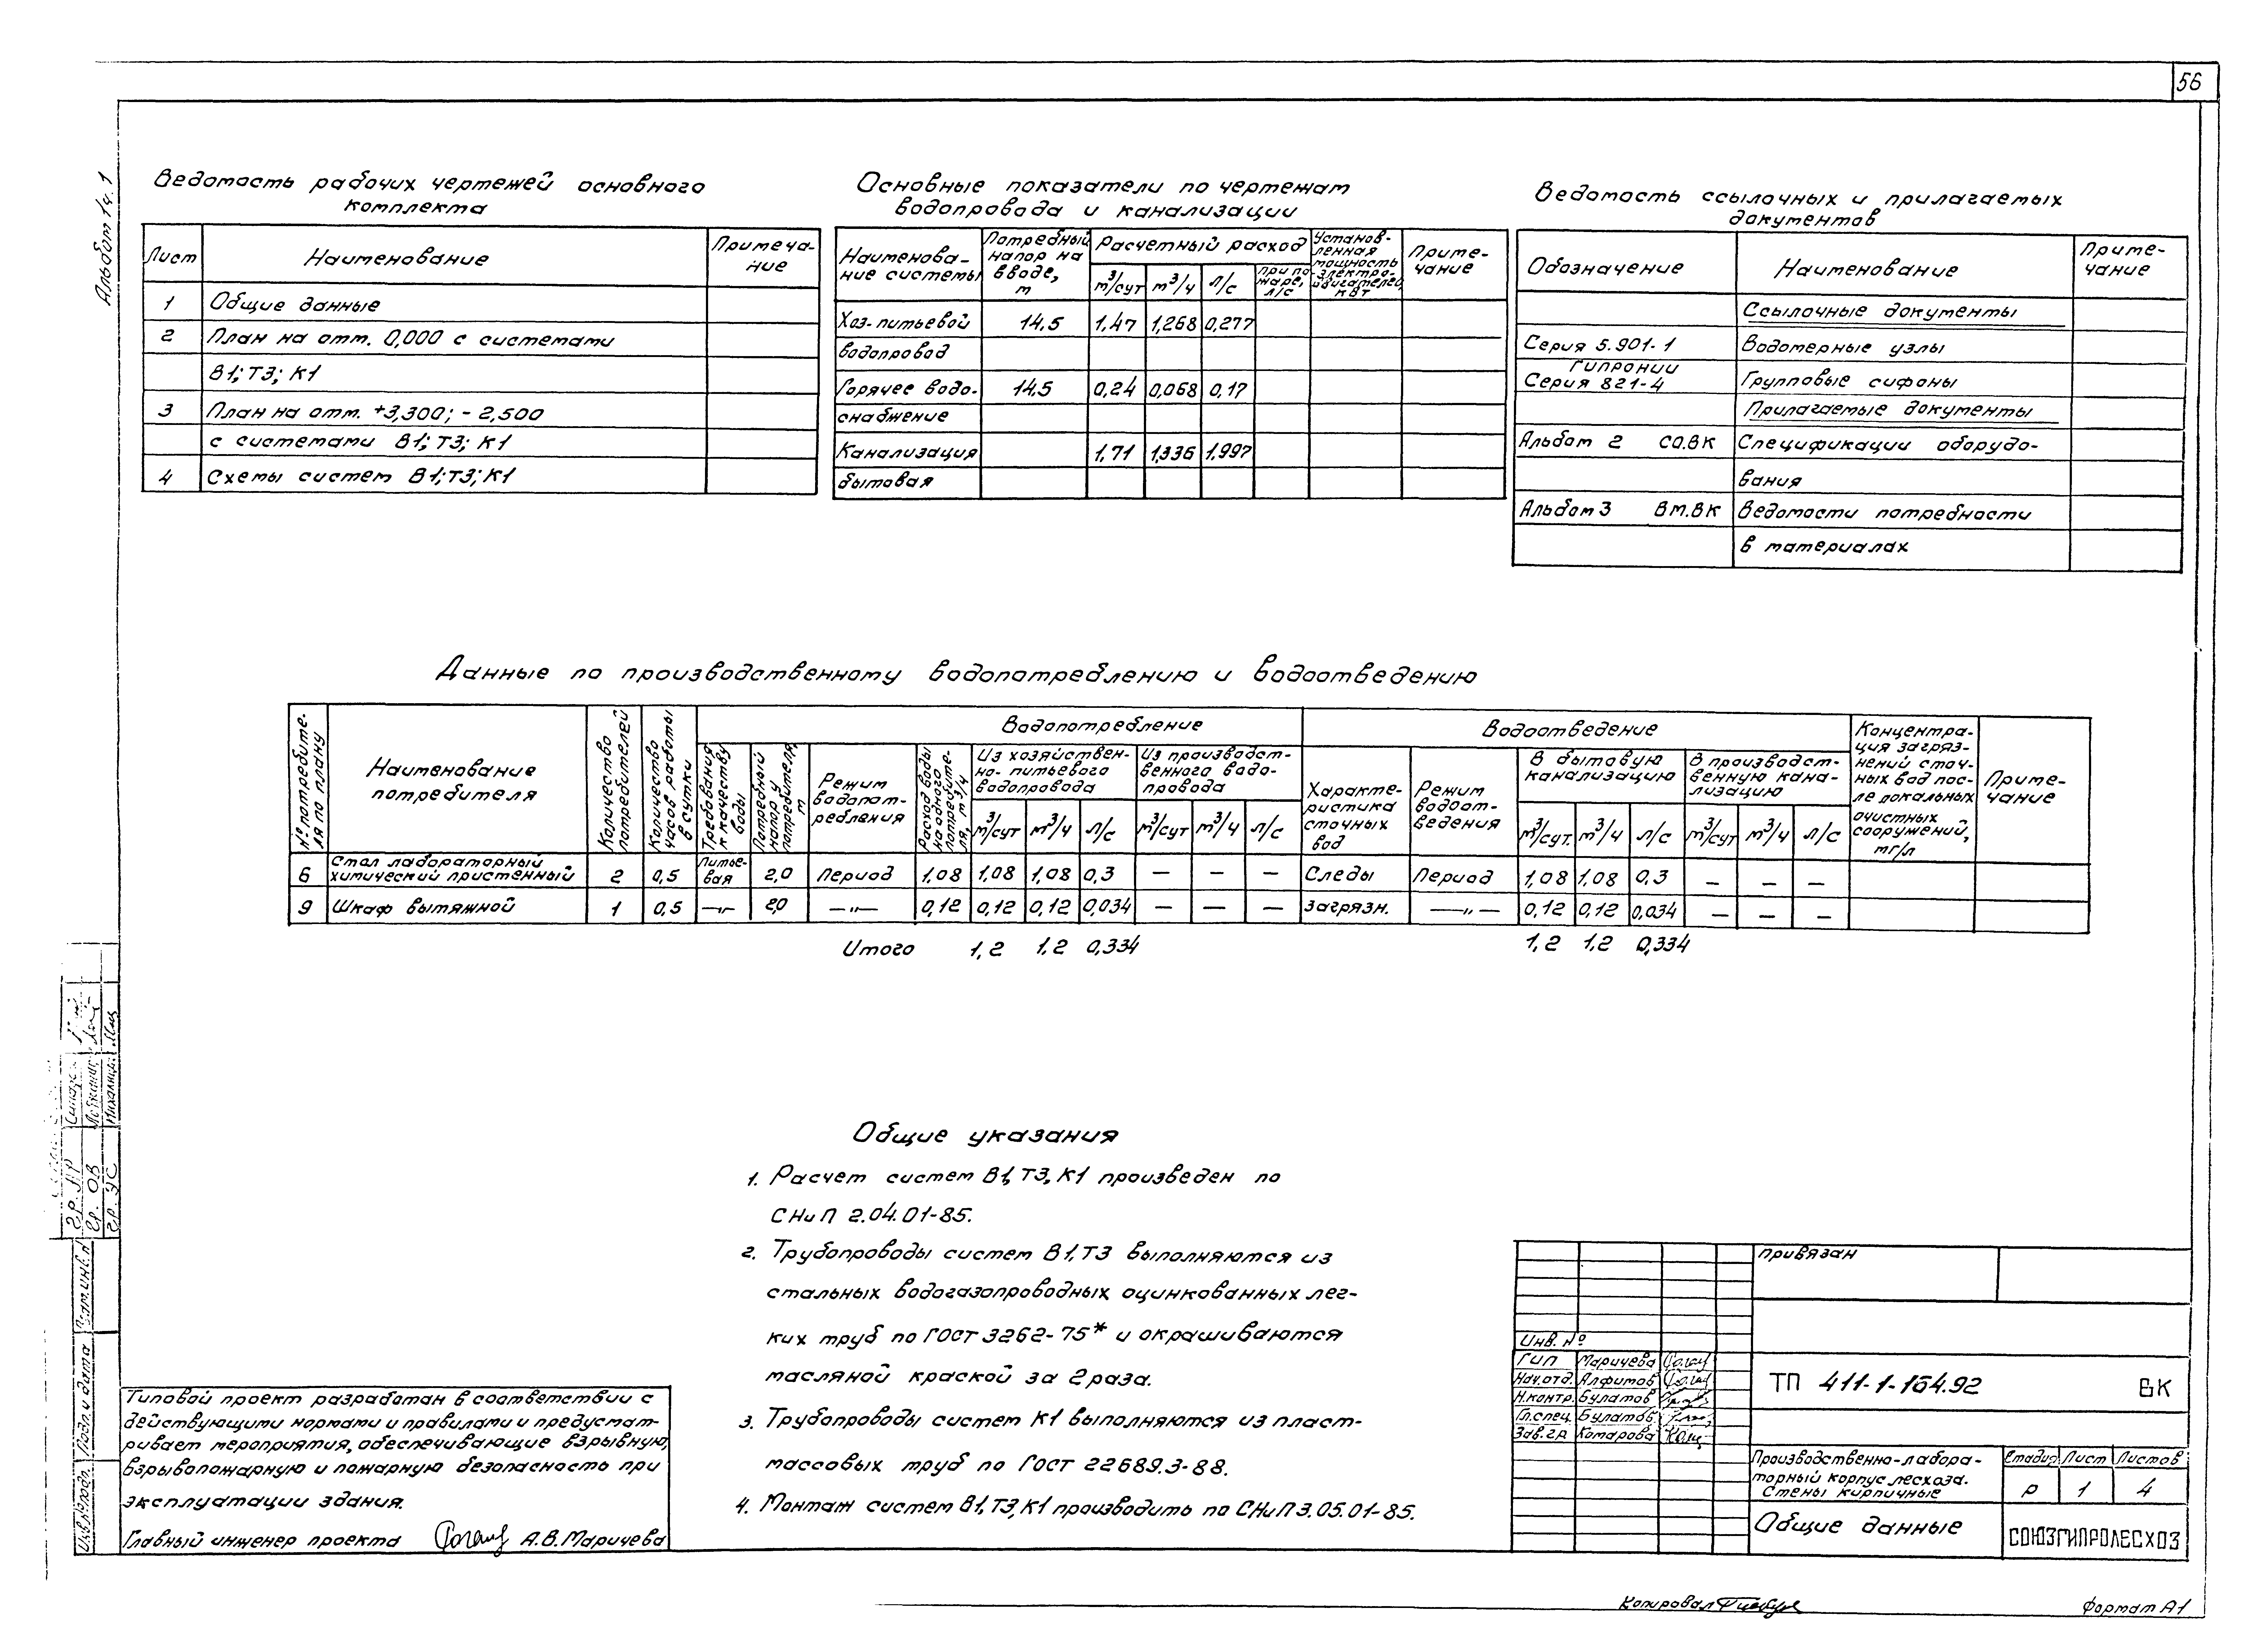 56
Альбом 1ч. 1
Ведомость рабочих чертежей основного
комплекта
Лист Наименование Примеча-
ние
1 Общие данные
2 План на отм. 0,000 с системами
В1; Т3; К1
3 План на отм. +3,300; -2,500
с системами В1; Т3; К1
4 Схемы систем В1; Т3; К1
Основные показатели по чертежам
водопровода и канализации
Наименова-
ние системы
Потребный
напор на
вводе,
м
Расчетный расход
м³/сут м³/ч л/с
при по-
жаре,
л/с
Установ-
ленная
мощность
электро-
двигателей,
кВт
Приме-
чание
Хоз-питьевой 14,5 1,47 1,268 0,277
водопровод
Горячее водо- 14,5 0,24 0,068 0,17
снабжение
Канализация 1,71 1,336 1,997
бытовая
Ведомость ссылочных и прилагаемых
документов
Обозначение Наименование Приме-
чание
Ссылочные документы
Серия 5.901-1 Водомерные узлы
Гипронии
Серия 821-4 Групповые сифоны
Прилагаемые документы
Альбом 2 СО.ВК Спецификации оборудо-
вания
Альбом 3 ВМ.ВК Ведомости потребности
в материалах
Данные по производственному водопотреблению и водоотведению
№ потребите-
ля по плану
Наименование
потребителя
Количество
потребителей
Количество
часов работы
в сутки
Водопотребление
Требования
к качеству
воды
Потребный
напор у
потребителя,
м
Режим
водопот-
ребления
Расход воды
на одного
потребите-
ля, м³/ч
Из хозяйствен-
но-питьевого
водопровода
м³/сут м³/ч л/с
Из производст-
венного водо-
провода
м³/сут м³/ч л/с
Водоотведение
Характе-
ристика
сточных
вод
Режим
водоот-
ведения
В бытовую
канализацию
м³/сут. м³/ч л/с
В производст-
венную кана-
лизацию
м³/сут м³/ч л/с
Концентра-
ция загряз-
нений сточ-
ных вод пос-
ле локальных
очистных
сооружений,
мг/л
Приме-
чание
6 Стол лабораторный
химический пристенный 2 0,5 Питье-
вая 2,0 Период 1,08 1,08 1,08 0,3 — — — Следы Период 1,08 1,08 0,3 — — —
9 Шкаф вытяжной 1 0,5 —"— 2,0 —"— 0,12 0,12 0,12 0,034 — — — загрязн. —"— 0,12 0,12 0,034 — — —
Итого 1,2 1,2 0,334 1,2 1,2 0,334
Общие указания
1. Расчет систем В1, Т3, К1 произведен по
СНиП 2.04.01-85.
2. Трубопроводы систем В1, Т3 выполняются из
стальных водогазопроводных оцинкованных лег-
ких труб по ГОСТ 3262-75* и окрашиваются
масляной краской за 2 раза.
3. Трубопроводы систем К1 выполняются из пласт-
массовых труб по ГОСТ 22689.3-88.
4. Монтаж систем В1, Т3, К1 производить по СНиП 3.05.01-85.
Типовой проект разработан в соответствии с
действующими нормами и правилами и предусмат-
ривает мероприятия, обеспечивающие взрывную,
взрывопожарную и пожарную безопасность при
эксплуатации здания.
Главный инженер проекта А.В. Маричева
гр. ОВ
гр. УС
Взам. инв. №
Подп. и дата
Инв. № подл.
привязан
Инв. №
ГИП Маричева
Нач. отд. Алфимов
Н.контр. Булатов
Гл.спец. Булатов
Зав.гр. Комарова
ТП 411-1-154.92 ВК
Производственно-лабора-
торный корпус лесхоза.
Стены кирпичные
Стадия Лист Листов
Р 1 4
Общие данные
СОЮЗГИПРОЛЕСХОЗ
Копировал
Формат А1